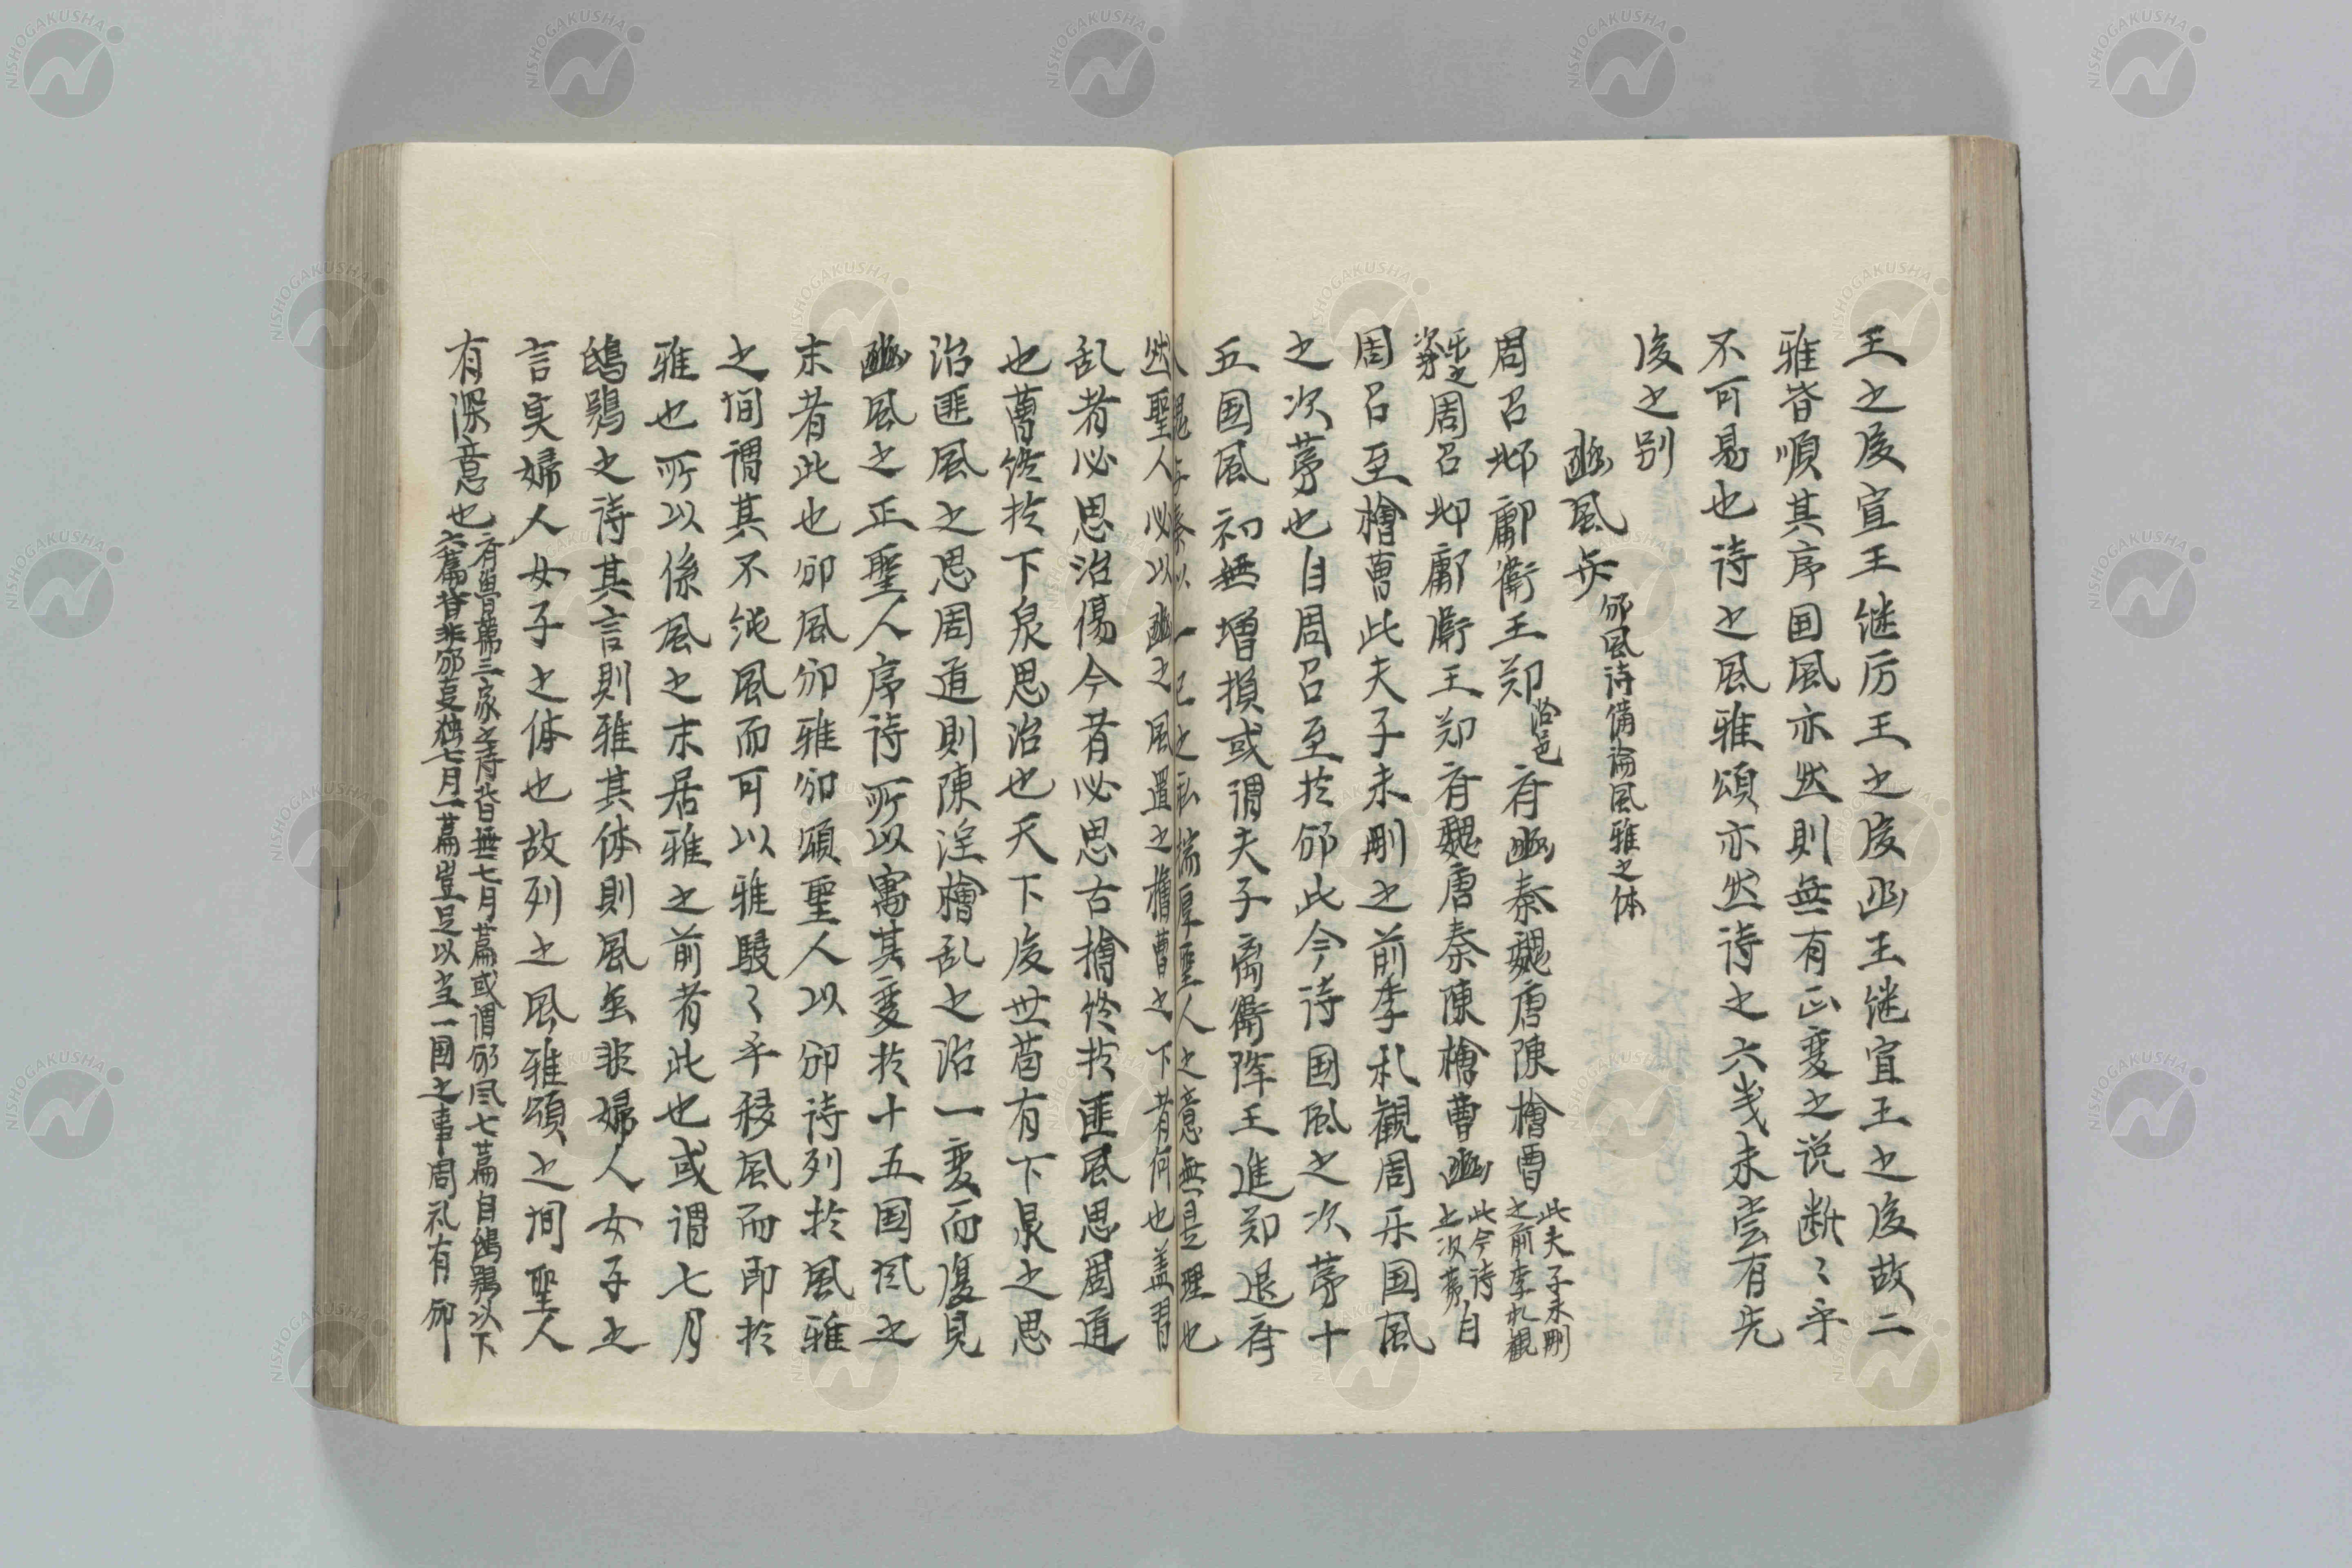 王之後宣王継厉王之後幽王継宣王之後故二
雅皆順其序国風亦然則無有正変之说断〻乎
不可易也诗之風雅頌亦然诗之六義未尝有先
後之别
豳風辨 邠風诗備論風雅之体
周召邶鄘衛王郑 洛邑 齐豳秦魏唐陳檜曹 此夫子未刪
之前季札觀
乐之
次苐 周召邶鄘衛王郑齐魏唐秦陳檜曹豳 此今诗
之次苐 自
周召至檜曹此夫子未刪之前季札觀周乐国風
之次苐也自周召至於邠此今诗国風之次苐十
五国風初無増損或谓夫子离衛降王進郑退齐
入魏与秦以一己之私揣摩聖人之意無是理也
然聖人必以豳之風置之檜曹之下者何也盖習
乱者必思治傷今者必思古檜终於匪風思周道
也曹终於下泉思治也天下後世苟有下泉之思
治匪風之思周道則陳淫檜乱之治一変而復見
豳風之正聖人序诗所以寓其変於十五国風之
末者此也邠風邠雅邠頌聖人以邠诗列於風雅
之间谓其不純風而可以雅駸〻乎移風而即於
雅也所以係風之末居雅之前者此也或谓七月
鴟鴞之诗其言則雅其体則風虽非婦人女子之
言实婦人女子之体也故列之風雅頌之间聖人
有深意也 齐魯韩三家之诗皆無七月篇或谓邠風七篇自鴟鴞以下
六篇皆非邠事独七月一篇岂足以当一国之事周礼有邠
NISHOGAKUSHA